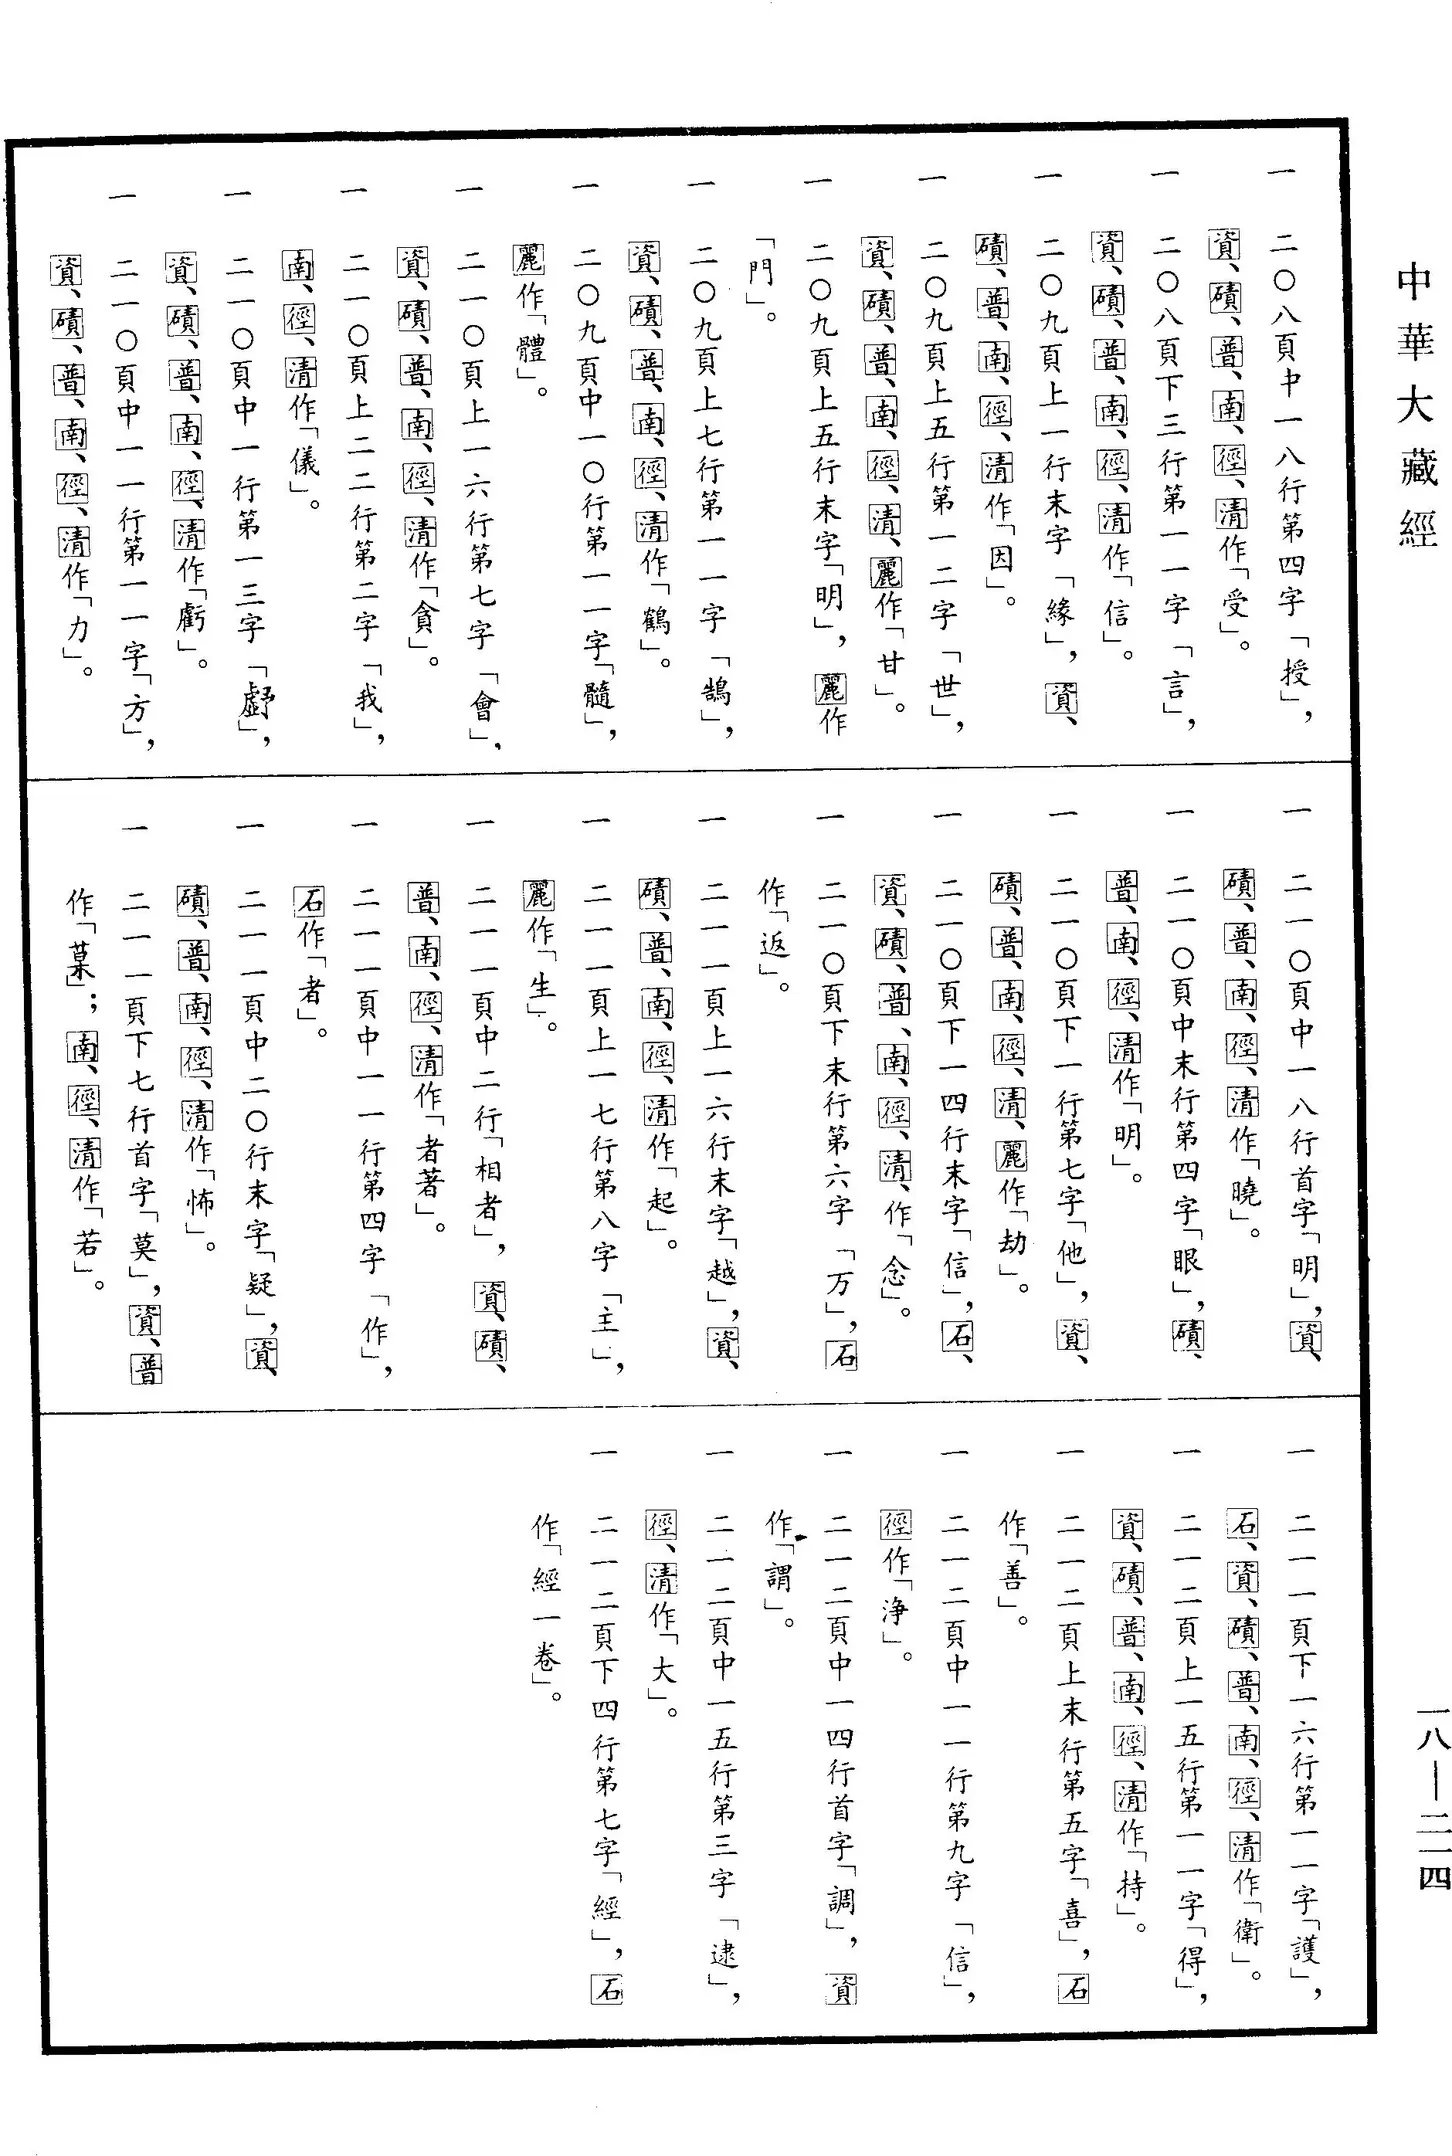 中華大藏經
一 二〇八頁中一八行第四字「授」，
資、磧、普、南、徑、清作「受」。
一 二〇八頁下三行第一一字「言」，
資、磧、普、南、徑、清作「信」。
一 二〇九頁上一行末字「緣」，資、
磧、普、南、徑、清作「因」。
一 二〇九頁上五行第一二字「世」，
資、磧、普、南、徑、清、麗作「甘」。
一 二〇九頁上五行末字「明」，麗作
「門」。
一 二〇九頁上七行第一一字「鵠」，
資、磧、普、南、徑、清作「鶴」。
一 二〇九頁中一〇行第一一字「髓」，
麗作「體」。
一 二一〇頁上一六行第七字「會」，
資、磧、普、南、徑、清作「貪」。
一 二一〇頁上二二行第二字「我」，
南、徑、清作「儀」。
一 二一〇頁中一行第一三字「戲」，
資、磧、普、南、徑、清作「虧」。
一 二一〇頁中一一行第一一字「方」，
資、磧、普、南、徑、清作「力」。
一 二一〇頁中一八行首字「明」，資、
磧、普、南、徑、清作「曉」。
一 二一〇頁中末行第四字「眼」，磧、
普、南、徑、清作「明」。
一 二一〇頁下一行第七字「他」，資、
磧、普、南、徑、清、麗作「劫」。
一 二一〇頁下一四行末字「信」，石、
資、磧、普、南、徑、清、作「念」。
一 二一〇頁下末行第六字「万」，石
作「返」。
一 二一一頁上一六行末字「越」，資、
磧、普、南、徑、清作「起」。
一 二一一頁上一七行第八字「主」，
麗作「生」。
一 二一一頁中二行「相者」，資、磧、
普、南、徑、清作「者著」。
一 二一一頁中一一行第四字「作」，
石作「者」。
一 二一一頁中二〇行末字「疑」，資、
磧、普、南、徑、清作「怖」。
一 二一一頁下七行首字「莫」，資、普
作「菓」；南、徑、清作「若」。
一 二一一頁下一六行第一一字「護」，
石、資、磧、普、南、徑、清作「衛」。
一 二一二頁上一五行第一一字「得」，
資、磧、普、南、徑、清作「持」。
一 二一二頁上末行第五字「喜」，石
作「善」。
一 二一二頁中一一行第九字「信」，
徑作「淨」。
一 二一二頁中一四行首字「調」，資
作「謂」。
一 二一二頁中一五行第三字「逮」，
徑、清作「大」。
一 二一二頁下四行第七字「經」，石
作「經一卷」。
一八—二一四